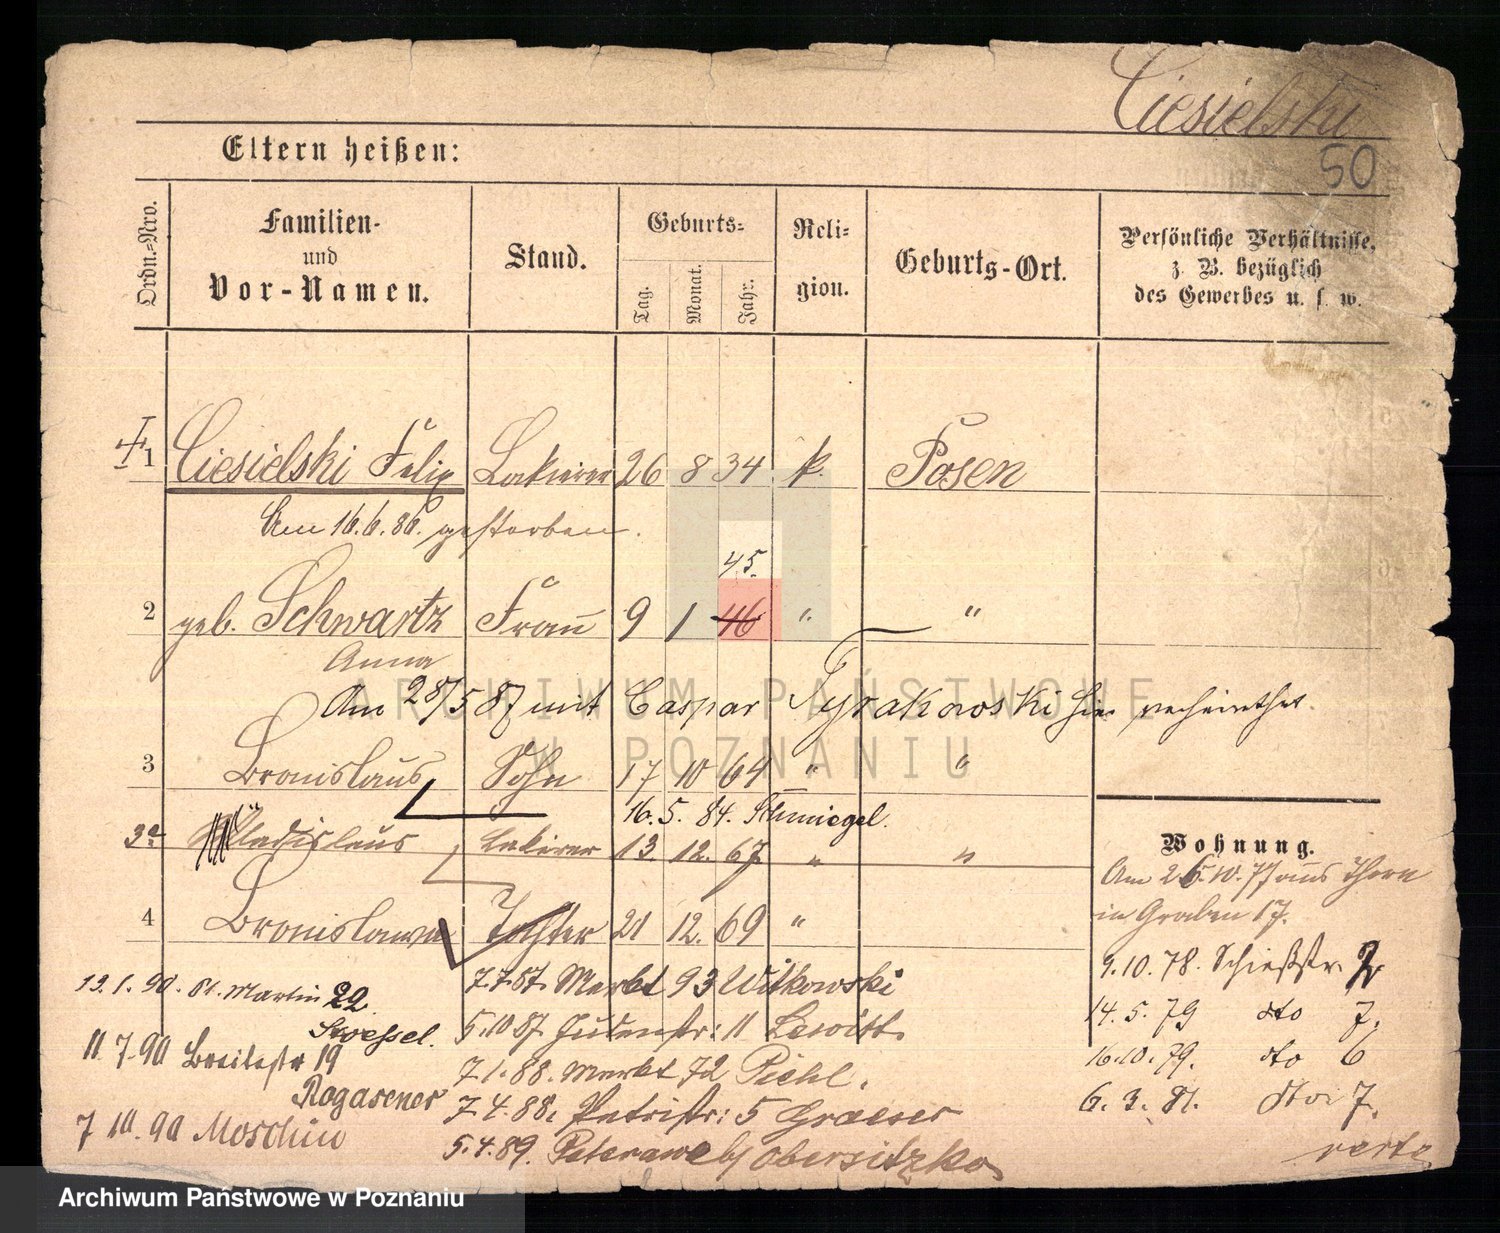 Ciesielski
50
Eltern heißen:
Ordn.=Nro.
Familien-
und
Vor-Namen.
Stand.
Geburts=
Tag.
Monat.
Jahr.
Reli=
gion.
Geburts-Ort.
Persönliche Verhältnisse,
z. B. bezüglich
des Gewerbes u. s. w.
1 Ciesielski Felix Lakierer 26 8 34 k. Posen
Am 16.6.86. gestorben.
45.
2 geb. Schwartz Frau 9 1 46 " "
Anna
Am 28/5 87 mit Caspar Tyrakowski hier verheirathet
3 Bronislaus Sohn 17 10 64 " "
16. 5. 84. Schmiegel.
3a Wladislaus Lakirer 13 12. 67 " "
4 Bronislawa Tochter 21 12. 69 "
Wohnung.
Am 26.10.77 aus Thorn
in Graben 17.
9.10.78. Schießstr. 7
14.5.79 dto 7.
16.10.79. dto 6
6.3.81. dto 7.
verte
7.7.87. Markt 93 Witkowski
5.10 87 Judenstr: 11
7.1.88. Markt 72 Piehl.
7.4.88. Petristr: 5 Graeser
5.4.89. Obersitzko
13.1.90. St. Martin 29
Stoessel.
11.7.90 Breitestr 19
Rogasener
7 10.90 Moschin
ARCHIWUM PAŃSTWOWE
W POZNANIU
Archiwum Państwowe w Poznaniu